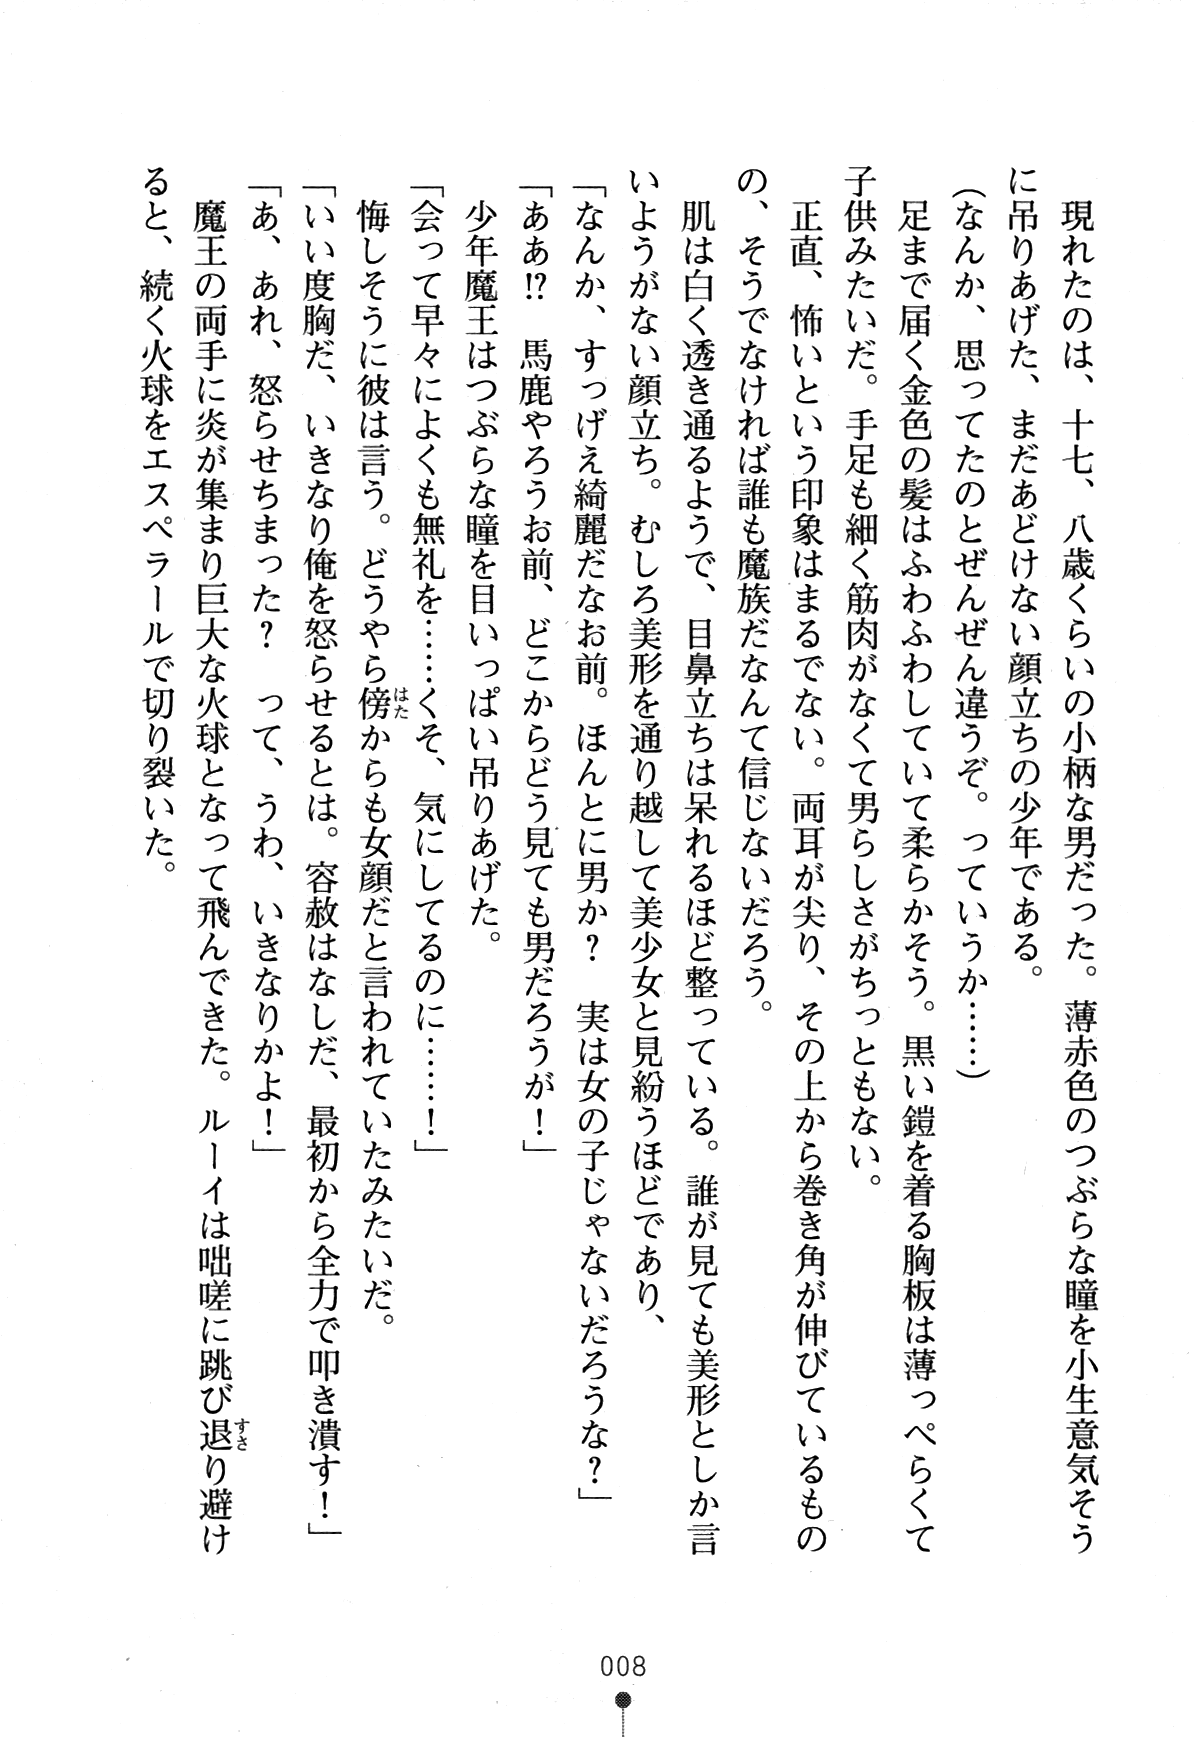 現れたのは、十七、八歳くらいの小柄な男だった。薄赤色のつぶらな瞳を小生意気そう
に吊りあげた、まだあどけない顔立ちの少年である。
（なんか、思ってたのとぜんぜん違うぞ。っていうか……）
足まで届く金色の髪はふわふわしていて柔らかそう。黒い鎧を着る胸板は薄っぺらくて
子供みたいだ。手足も細く筋肉がなくて男らしさがちっともない。
正直、怖いという印象はまるでない。両耳が尖り、その上から巻き角が伸びているもの
の、そうでなければ誰も魔族だなんて信じないだろう。
肌は白く透き通るようで、目鼻立ちは呆れるほど整っている。誰が見ても美形としか言
いようがない顔立ち。むしろ美形を通り越して美少女と見紛うほどであり、
「なんか、すっげえ綺麗だなお前。ほんとに男か？　実は女の子じゃないだろうな？」
「ああ!?　馬鹿やろうお前、どこからどう見ても男だろうが！」
少年魔王はつぶらな瞳を目いっぱい吊りあげた。
「会って早々によくも無礼を……くそ、気にしてるのに……！」
悔しそうに彼は言う。どうやら傍はたからも女顔だと言われていたみたいだ。
「いい度胸だ、いきなり俺を怒らせるとは。容赦はなしだ、最初から全力で叩き潰す！」
「あ、あれ、怒らせちまった？　って、うわ、いきなりかよ！」
魔王の両手に炎が集まり巨大な火球となって飛んできた。ルーイは咄嗟に跳び退すさり避け
ると、続く火球をエスペラールで切り裂いた。
008